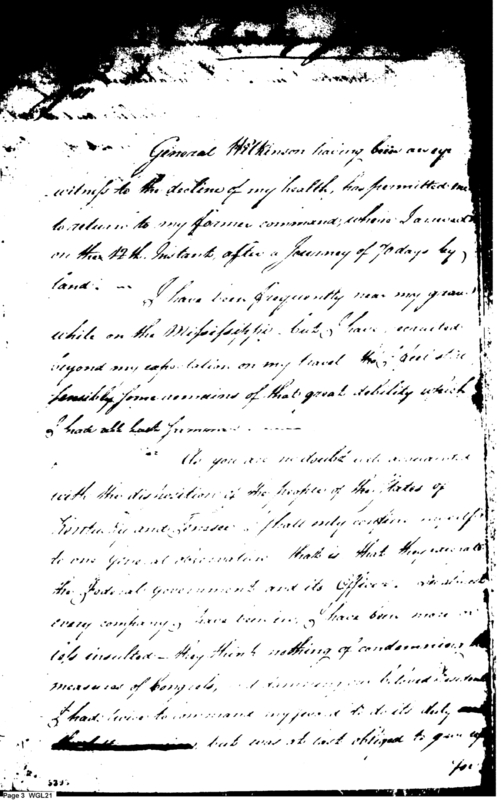 General Wilkinson having been an eye
witness to the decline of my health, has permitted me
to return to my former command, where I arrived
on the 12th Instant, after a Journey of 70 days by
land. —
I have been frequently near my grave
while on the Mississippi, but I have recruited
beyond my expectation on my travel tho I feel still
sensibly some remains of that great debility which
I had all last summer. —
As you are no doubt well acquainted
with the disposition of the people of the States of
Kentucky and Tenesee I shall only confine myself
to one general observation that is that they
the Federal government and its Officers. In almost
every company I have been in, I have been more or
less insulted — they think nothing of condemning the
measures of Congress, and damning our beloved President
I had twice to command my sword to do its duty
but was at last obliged to give up
for
Page 3 WGL21